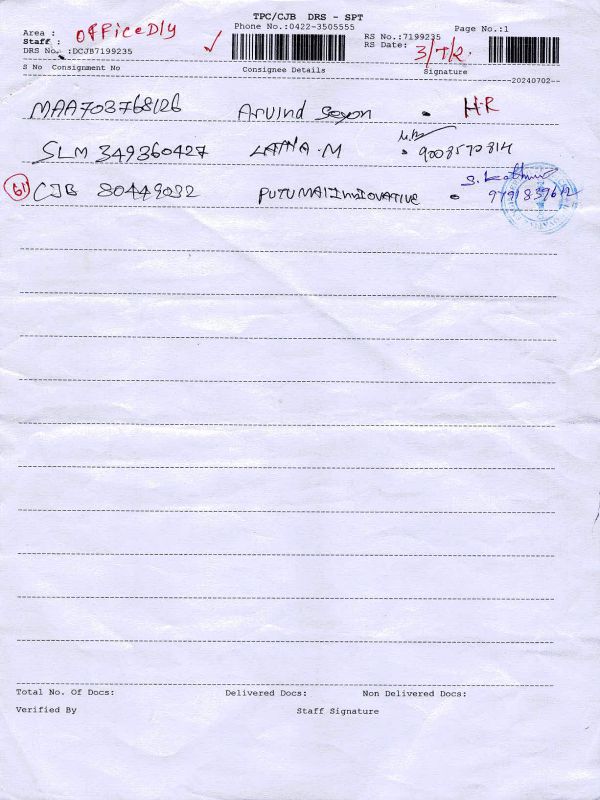 TPC/CJB DRS - SPT
Phone No.:0422-3505555
Page No.:1
Area : OFFiceDly
Staff :
DRS No. :DCJB7199235
RS No.:7199235
RS Date: 3/7/2.
S No Consignment No Consignee Details Signature
--20240702--
MAA703768126 Arvind HR
SLM 349360427 LATHA.M 9003570814
61 CJB 80449032 PUTUMAI INNOVATIVE
Total No. Of Docs: Delivered Docs: Non Delivered Docs:
Verified By Staff Signature